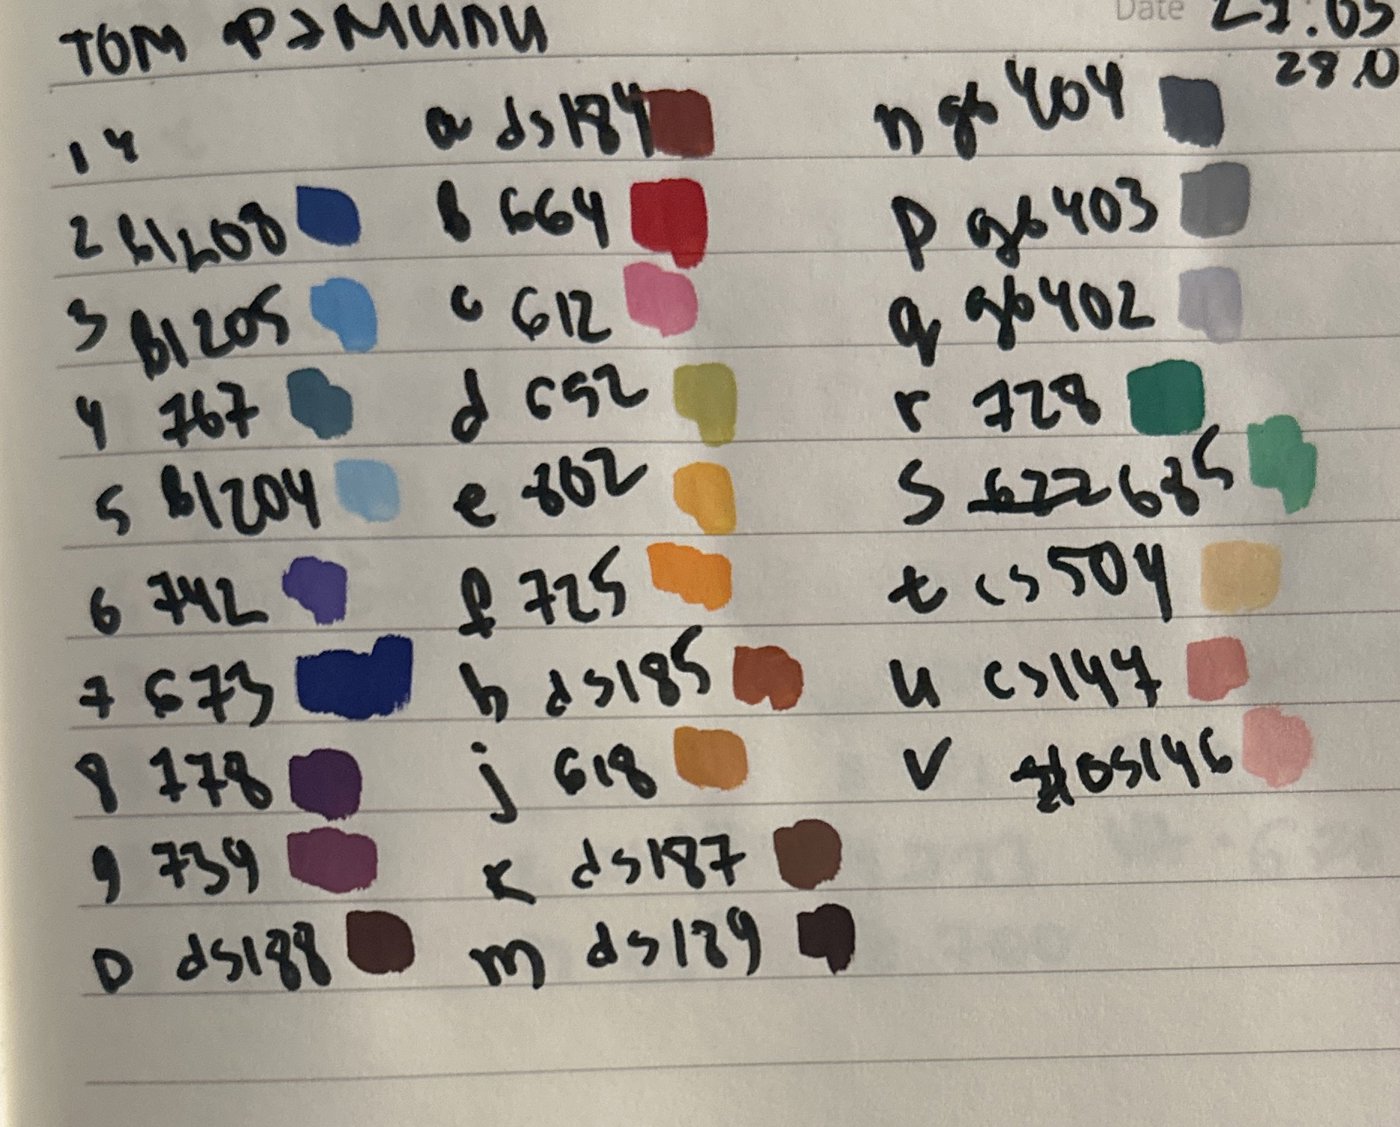 Date 27.05
28.0
1 4
2 bl208
3 bl205
4 767
5 bl204
6 742
7 673
8 778
9 739
0 ds188
a ds184
b 664
c 612
d 652
e 802
f 725
h ds185
j 618
k ds187
m ds189
n gb404
p gb403
q gb402
r 728
s 685
t cs504
u cs147
v 146